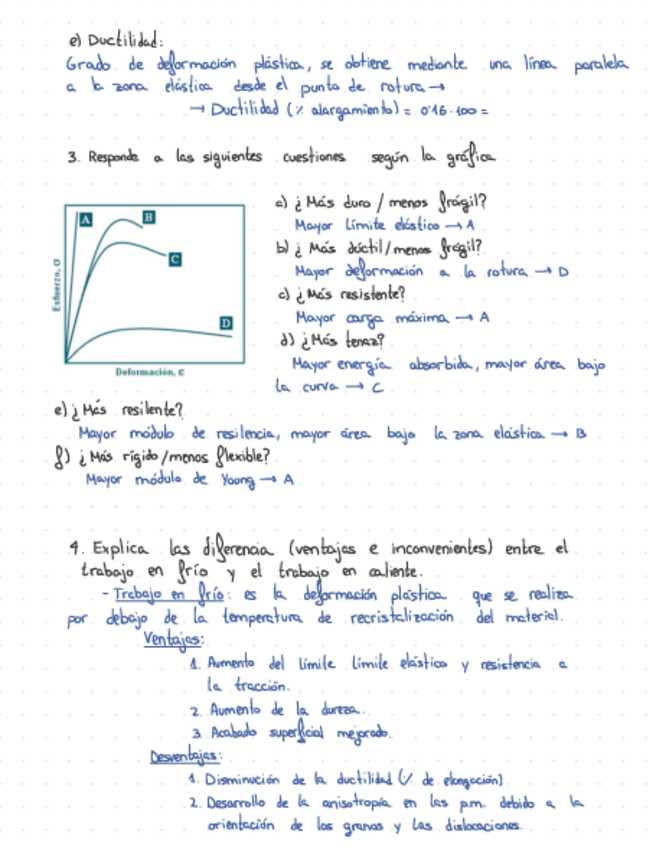 e) Ductilidad:
Grado de deformación plástica, se obtiene mediante una línea paralela
a la zona elástica desde el punto de rotura →
→ Ductilidad (% alargamiento) = 0'16·100 =
3. Responde a las siguientes cuestiones según la gráfica
A
B
C
D
Esfuerzo, σ
Deformación, ε
a) ¿Más duro / menos frágil?
Mayor límite elástico → A
b) ¿Más dúctil/menos frágil?
Mayor deformación a la rotura → D
c) ¿Más resistente?
Mayor carga máxima → A
d) ¿Más tenaz?
Mayor energía absorbida, mayor área bajo
la curva → C
e) ¿Más resilente?
Mayor módulo de resilencia, mayor área bajo la zona elástica → B
f) ¿Más rígido/menos flexible?
Mayor módulo de Young → A
4. Explica las diferencia (ventajas e inconvenientes) entre el
trabajo en frío y el trabajo en caliente.
- Trabajo en frío: es la deformación plástica que se realiza
por debajo de la temperatura de recristalización del material.
Ventajas:
1. Aumento del límite límite elástico y resistencia a
la tracción.
2. Aumento de la dureza.
3. Acabado superficial mejorado.
Desventajas:
1. Disminución de la ductilidad (% de elongación)
2. Desarrollo de la anisotropía en las p.m. debido a la
orientación de los granos y las dislocaciones.